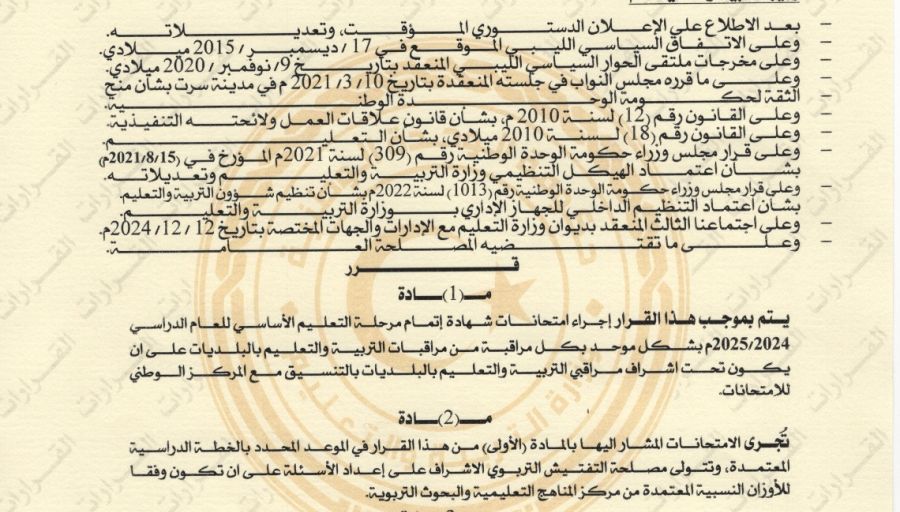 – بعد الاطلاع على الإعلان الدستوري المؤقت، وتعديلاته.
– وعلى الاتفاق السياسي الليبي الموقع في 17 / ديسمبر / 2015 ميلادي.
– وعلى مخرجات ملتقى الحوار السياسي الليبي المنعقد بتاريخ 9/ نوفمبر / 2020 ميلادي.
– وعلى ما قرره مجلس النواب في جلسته المنعقدة بتاريخ 10/ 3/ 2021 م في مدينة سرت بشان منح
الثقة لحكومة الوحدة الوطنية.
– وعلى القانون رقم (12) لسنة 2010 م، بشان قانون علاقات العمل ولائحته التنفيذية.
– وعلى القانون رقم (18) لسنة 2010 ميلادي، بشان التعليم.
– وعلى قرار مجلس وزراء حكومة الوحدة الوطنية رقم (309) لسنة 2021م المؤرخ في (2021/8/15م)
بشان اعتماد الهيكل التنظيمي وزارة التربية والتعليم وتعديلاته.
– وعلى قرار مجلس وزراء حكومة الوحدة الوطنية رقم (1013) لسنة 2022م بشان تنظيم شؤون التربية والتعليم.
بشان اعتماد التنظيم الداخلي للجهاز الإداري بوزارة التربية والتعليم.
– وعلى اجتماعنا الثالث المنعقد بديوان وزارة التعليم مع الإدارات والجهات المختصة بتاريخ 12 / 12 / 2024م.
– وعلى ما تقتضيه المصلحة العامة.
قرر
مادة (1)
يتم بموجب هذا القرار إجراء امتحانات شهادة إتمام مرحلة التعليم الأساسي للعام الدراسي
2025/2024م بشكل موحد بكل مراقبة من مراقبات التربية والتعليم بالبلديات على ان
يكون تحت اشراف مراقبي التربية والتعليم بالبلديات بالتنسيق مع المركز الوطني
للامتحانات.
مادة (2)
تُجرى الامتحانات المشار اليها بالمادة (الأولى) من هذا القرار في الموعد المحدد بالخطة الدراسية
المعتمدة، وتتولى مصلحة التفتيش التربوي الاشراف على إعداد الأسئلة على ان تكون وفقا
للأوزان النسبية المعتمدة من مركز المناهج التعليمية والبحوث التربوية.